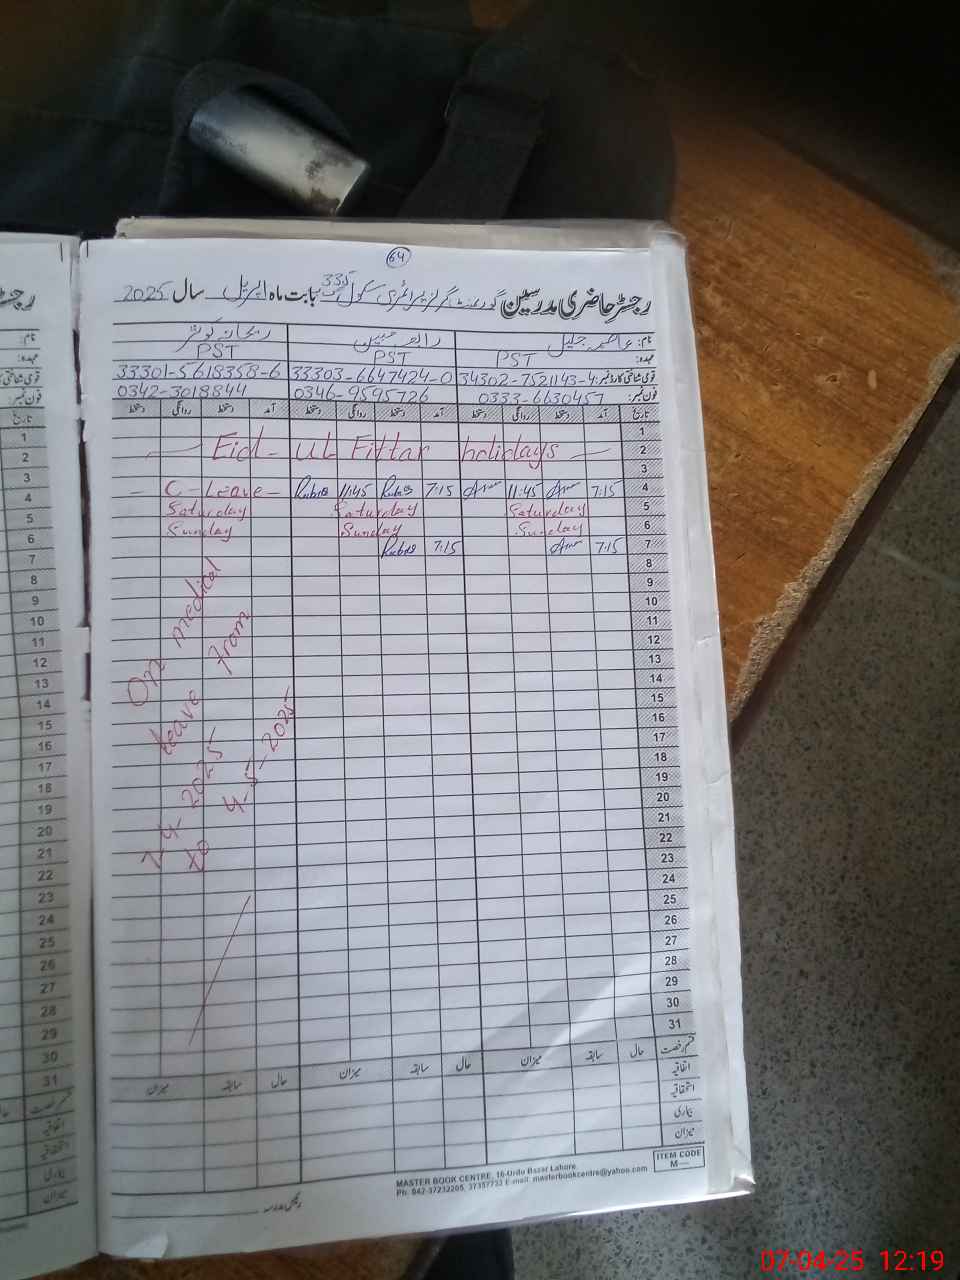 64
رجسٹر حاضری مدرسین گورنمنٹ گرلز پرائمری سکول 335 بابت ماہ اپریل سال 2025
نام: عاصمہ جلیل رابعہ ریحانہ کوثر
عہدہ: PST PST PST
قومی شناختی کارڈ نمبر: 34302-7521143-4 33303-6647424-0 33301-5618358-6
فون نمبر: 0333-6630457 0346-9595726 0342-3018844
تاریخ آمد دستخط روانگی دستخط آمد دستخط روانگی دستخط آمد دستخط روانگی دستخط
1
2 Eid-ul Fittar holidays
3
4 7:15 11:45 7:15 11:45 C-Leave
5 Saturday Saturday Saturday
6 Sunday Sunday Sunday
7 7:15 7:15
8
9
10
11
12
13
14
15
16
17
18
19
20
21
22
23
24
25
26
27
28
29
30
31
On medical
leave from
7-4-2025
to 4-5-2025
قسم رخصت حال سابقہ میزان حال سابقہ میزان حال سابقہ میزان
اتفاقیہ
استحقاقیہ
بیماری
میزان
MASTER BOOK CENTRE, 16-Urdu Bazar Lahore.
Ph. 042-37232205, 37357732 E-mail: masterbookcentre@yahoo.com
ITEM CODE
M—
رئیس مدرسہ
1
2
3
4
5
6
7
8
9
10
11
12
13
14
15
16
17
18
19
20
21
22
23
24
25
26
27
28
29
30
31
07-04-25 12:19